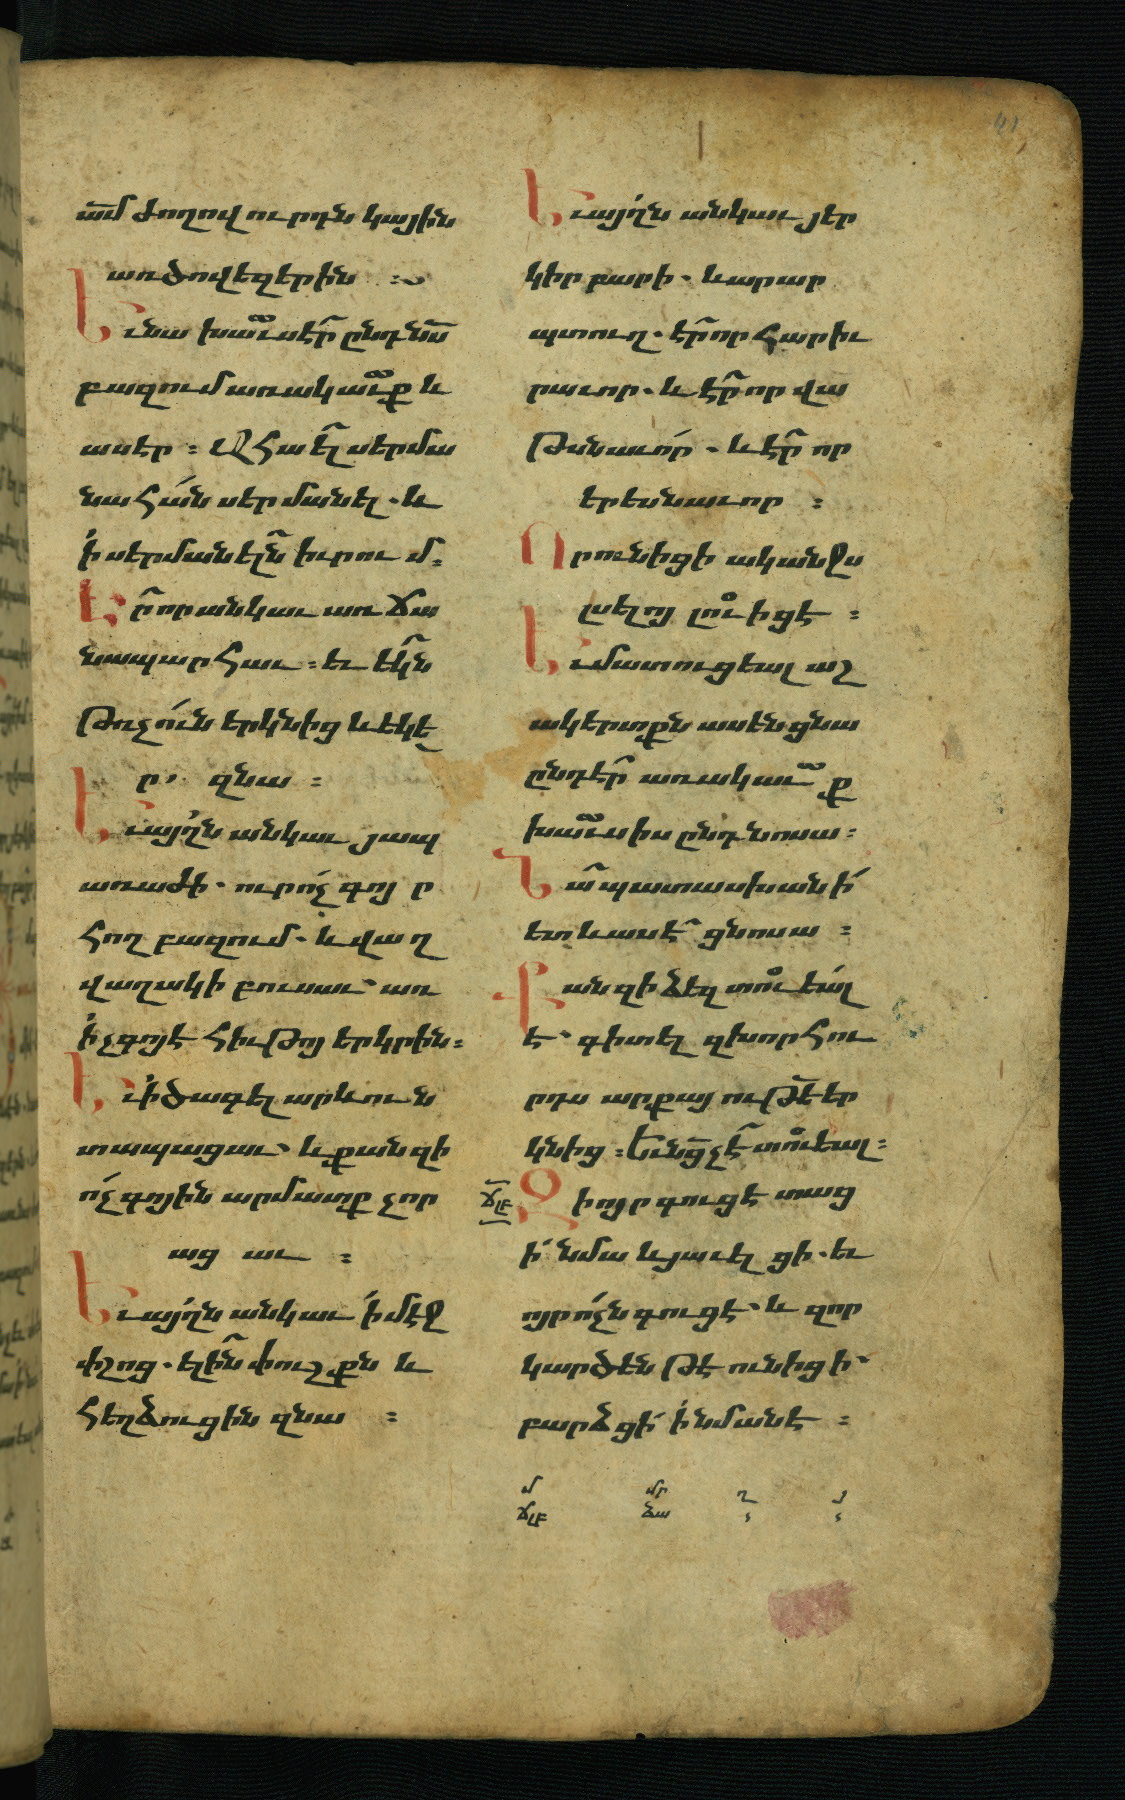 ա̅մ ժողովուրդն կային
առ ծովեզերին :~
Եւ նա խաւսէր ընդ նոսա
բազում առակաւք և
ասէր : Ահա ել սերմա
նահան սերմանել . և
ի սերմանելն իւրում :
Էր որ անկաւ առ ճա
նապարհաւ : եւ եկն
թռչուն երկնից և եկե
ր զնա :
Եւ այլն անկաւ յապ
առաժի . ուր ոչ գոյ ր
հող բազում . և վաղ
վաղակի բուսաւ առ
ի չգոյէ հիւթոյ երկրին :
Եւ ի ծագել արևուն
տապացաւ և քանզի
ոչ գոյին արմատք չոր
ացաւ :
Եւ այլն անկաւ ի մէջ
փշոց . ելին փուշքն և
հեղձուցին զնա :
Եւ այլն անկաւ յեր
կիր բարի . և արար
պտուղ . էր որ հարիւ
րաւոր . և էր որ վա
թսնաւոր . և էր որ
երեսնաւոր :
Որ ունիցի ականջս
լսելոյ լուիցէ :
Եւ մատուցեալ աշ
ակերտքն ասեն ցնա
ընդէր առակաւք
խաւսիս ընդ նոսա :
Նա պատասխանի
ետ և ասէ ցնոսա :
Քանզի ձեզ տուեալ
է գիտել զխորհու
րդս արքայութե եր
կնից : Եւ նոցա չէ տուեալ :
ՃԼԲ Զի ոյր գուցէ տաց
ի նմա և յաւելցի . եւ
ոյր ոչն գուցէ և զոր
կարծէն թէ ունիցի
բարձցի ի նմանէ :
մ մր ղ յ
ՃԼԲ ձա